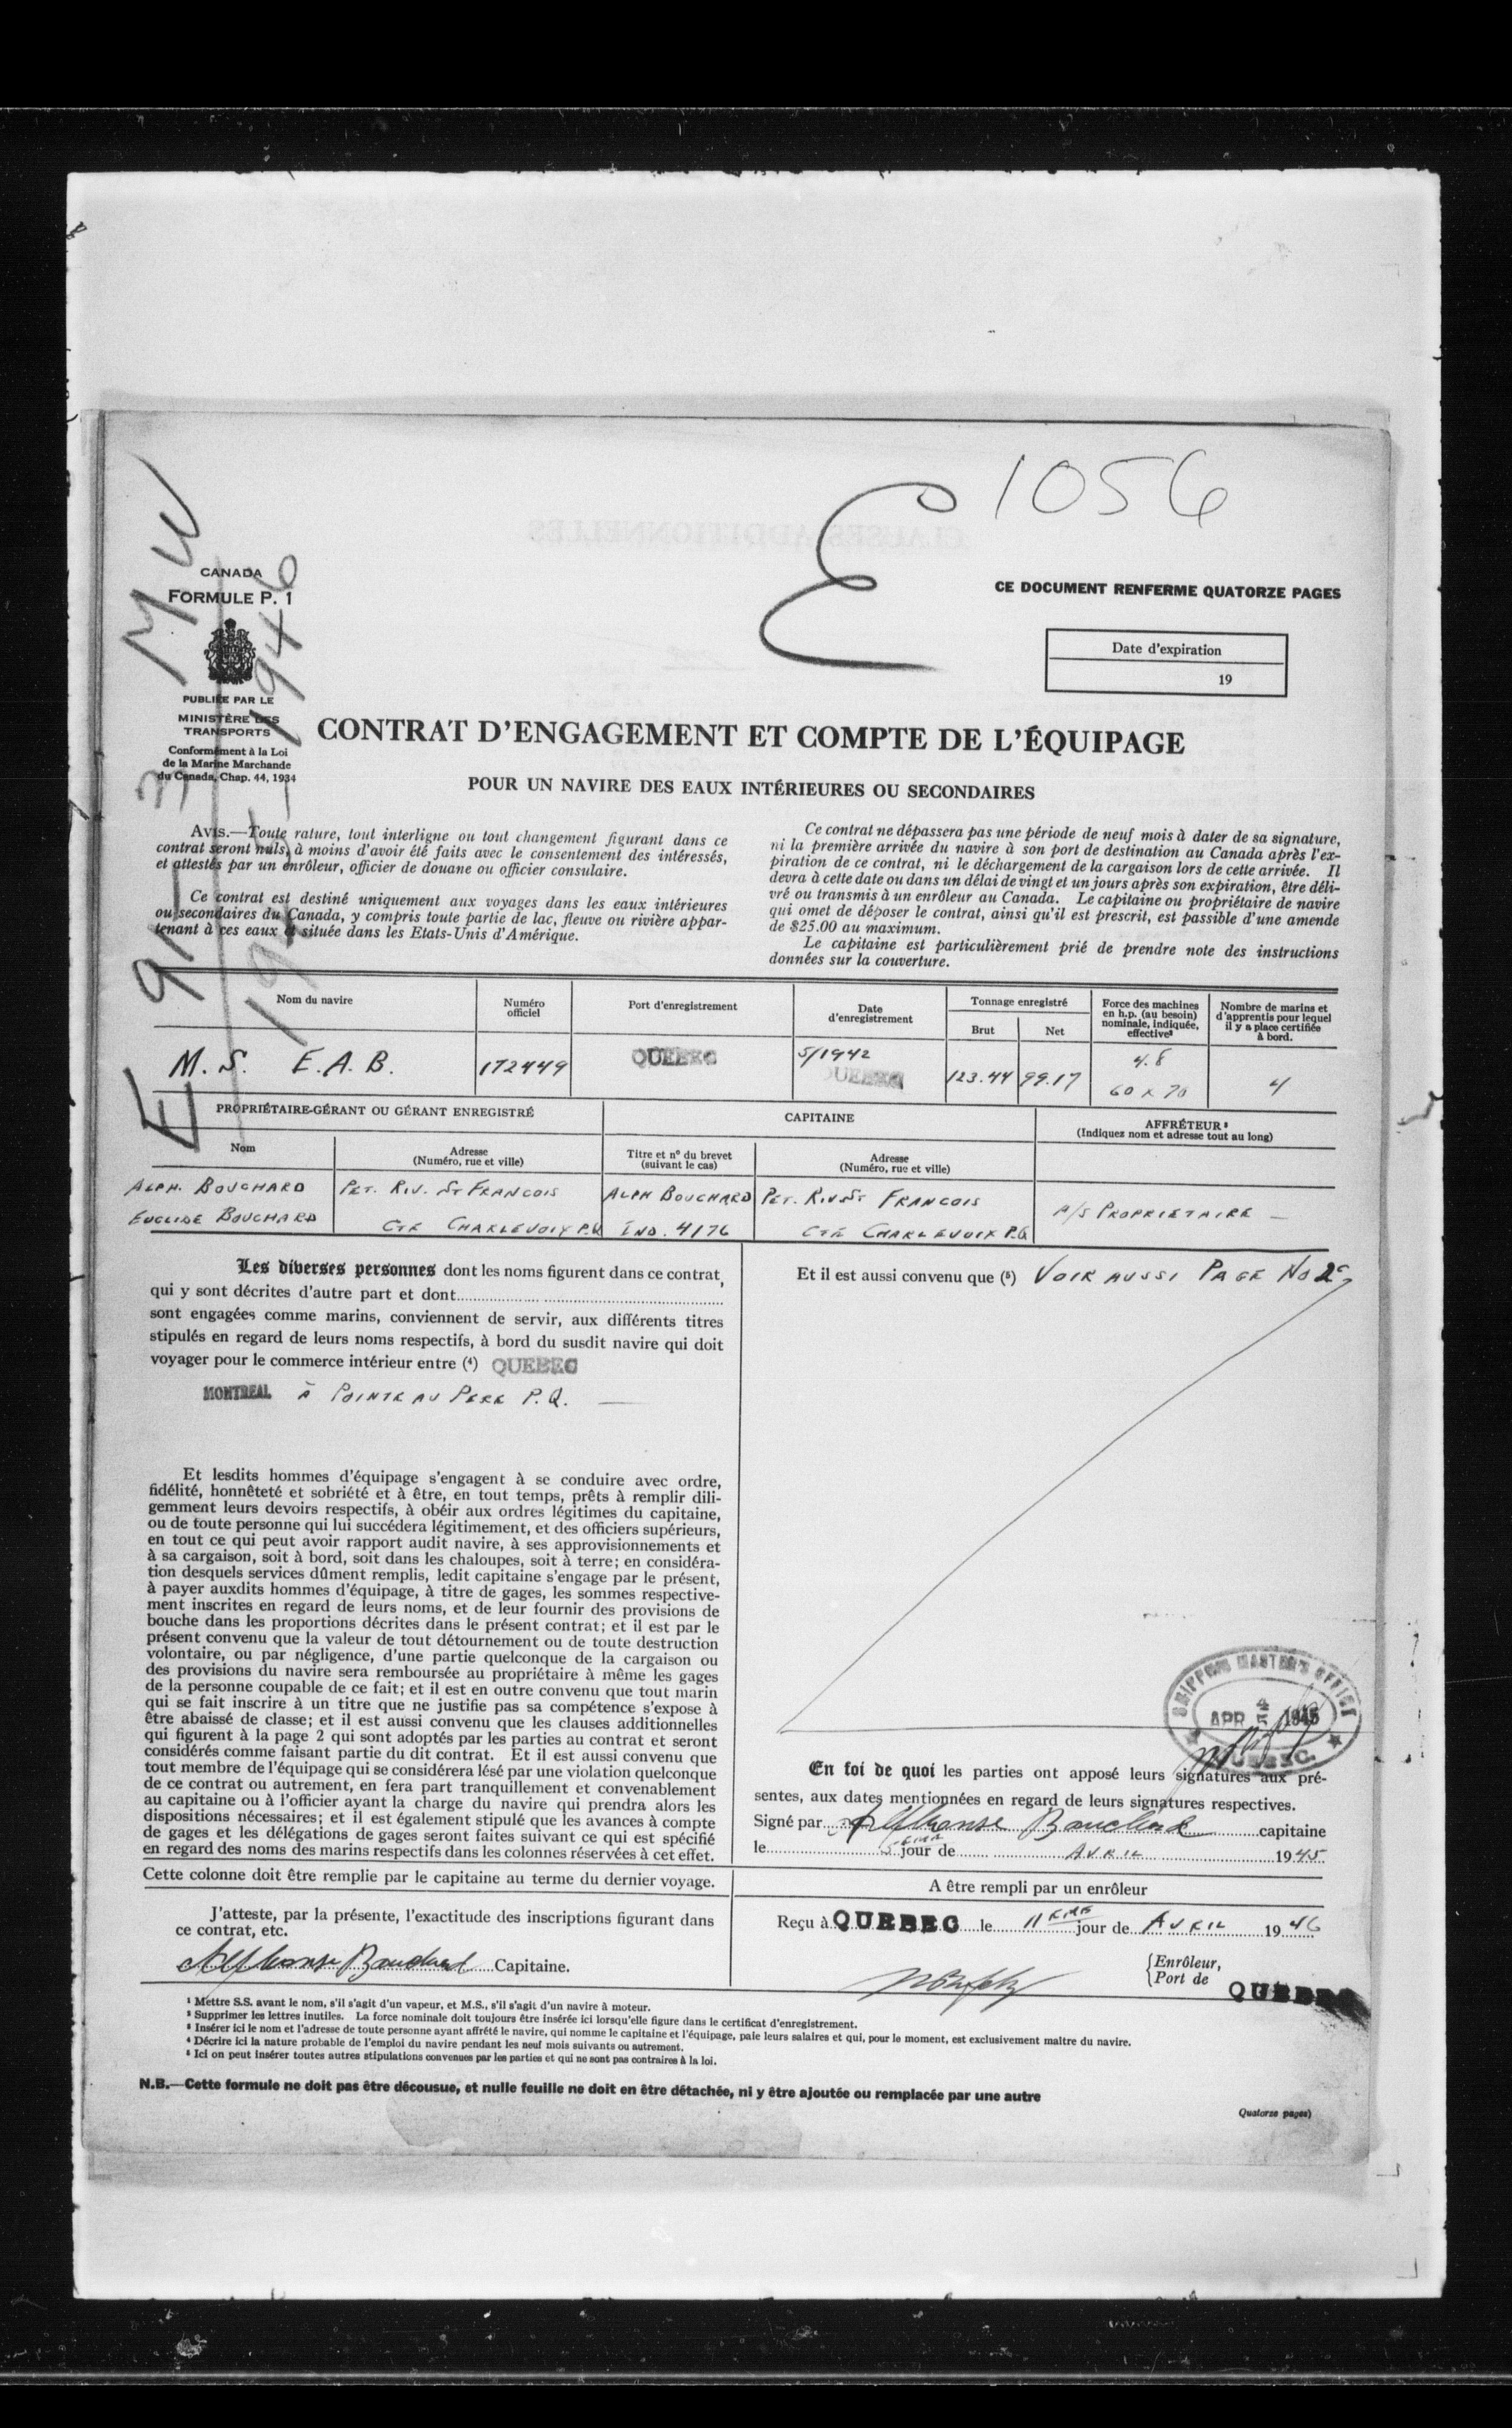 1056
E
M W
1946
CANADA
FORMULE P. 1
PUBLIÉE PAR LE
MINISTÈRE DES
TRANSPORTS
Conformément à la Loi
de la Marine Marchande
du Canada, Chap. 44, 1934
CE DOCUMENT RENFERME QUATORZE PAGES
Date d'expiration
19
CONTRAT D'ENGAGEMENT ET COMPTE DE L'ÉQUIPAGE
POUR UN NAVIRE DES EAUX INTÉRIEURES OU SECONDAIRES
AVIS.—Toute rature, tout interligne ou tout changement figurant dans ce
contrat seront nuls, à moins d'avoir été faits avec le consentement des intéressés,
et attestés par un enrôleur, officier de douane ou officier consulaire.
Ce contrat est destiné uniquement aux voyages dans les eaux intérieures
ou secondaires du Canada, y compris toute partie de lac, fleuve ou rivière appar-
tenant à ces eaux et située dans les Etats-Unis d'Amérique.
Ce contrat ne dépassera pas une période de neuf mois à dater de sa signature,
ni la première arrivée du navire à son port de destination au Canada après l'ex-
piration de ce contrat, ni le déchargement de la cargaison lors de cette arrivée. Il
devra à cette date ou dans un délai de vingt et un jours après son expiration, être déli-
vré ou transmis à un enrôleur au Canada. Le capitaine ou propriétaire de navire
qui omet de déposer le contrat, ainsi qu'il est prescrit, est passible d'une amende
de $25.00 au maximum.
Le capitaine est particulièrement prié de prendre note des instructions
données sur la couverture.
Nom du navire
Numéro officiel
Port d'enregistrement
Date d'enregistrement
Tonnage enregistré
Brut
Net
Force des machines
en h.p. (au besoin)
nominale, indiquée,
effective²
Nombre de marins et
d'apprentis pour lequel
il y a place certifiée
à bord.
M. S. E. A. B.
172449
QUEBEC
5/1942
QUEBEC
123.44
99.17
4.8
60 x 70
4
PROPRIÉTAIRE-GÉRANT OU GÉRANT ENREGISTRÉ
CAPITAINE
AFFRÉTEUR ³
(Indiquez nom et adresse tout au long)
Nom
Adresse
(Numéro, rue et ville)
Titre et n° du brevet
(suivant le cas)
Adresse
(Numéro, rue et ville)
ALPH. BOUCHARD
PET. RIV. ST FRANCOIS
ALPH BOUCHARD
PET. RIV ST FRANCOIS
A/S PROPRIETAIRE —
EUCLIDE BOUCHARD
CTÉ CHARLEVOIX P.Q
IND. 4176
CTÉ CHARLEVOIX P.Q
Les diverses personnes dont les noms figurent dans ce contrat,
qui y sont décrites d'autre part et dont
sont engagées comme marins, conviennent de servir, aux différents titres
stipulés en regard de leurs noms respectifs, à bord du susdit navire qui doit
voyager pour le commerce intérieur entre (⁴) QUEBEC
MONTREAL à POINTE AU PERE P.Q. —
Et lesdits hommes d'équipage s'engagent à se conduire avec ordre,
fidélité, honnêteté et sobriété et à être, en tout temps, prêts à remplir dili-
gemment leurs devoirs respectifs, à obéir aux ordres légitimes du capitaine,
ou de toute personne qui lui succédera légitimement, et des officiers supérieurs,
en tout ce qui peut avoir rapport audit navire, à ses approvisionnements et
à sa cargaison, soit à bord, soit dans les chaloupes, soit à terre; en considéra-
tion desquels services dûment remplis, ledit capitaine s'engage par le présent,
à payer auxdits hommes d'équipage, à titre de gages, les sommes respective-
ment inscrites en regard de leurs noms, et de leur fournir des provisions de
bouche dans les proportions décrites dans le présent contrat; et il est par le
présent convenu que la valeur de tout détournement ou de toute destruction
volontaire, ou par négligence, d'une partie quelconque de la cargaison ou
des provisions du navire sera remboursée au propriétaire à même les gages
de la personne coupable de ce fait; et il est en outre convenu que tout marin
qui se fait inscrire à un titre que ne justifie pas sa compétence s'expose à
être abaissé de classe; et il est aussi convenu que les clauses additionnelles
qui figurent à la page 2 qui sont adoptés par les parties au contrat et seront
considérés comme faisant partie du dit contrat. Et il est aussi convenu que
tout membre de l'équipage qui se considérera lésé par une violation quelconque
de ce contrat ou autrement, en fera part tranquillement et convenablement
au capitaine ou à l'officier ayant la charge du navire qui prendra alors les
dispositions nécessaires; et il est également stipulé que les avances à compte
de gages et les délégations de gages seront faites suivant ce qui est spécifié
en regard des noms des marins respectifs dans les colonnes réservées à cet effet.
Et il est aussi convenu que (⁵) VOIR AUSSI PAGE No 2
SHIPPING MASTER'S OFFICE
APR 5 1945
QUEBEC.
En foi de quoi les parties ont apposé leurs signatures aux pré-
sentes, aux dates mentionnées en regard de leurs signatures respectives.
Signé par Alphonse Bouchard capitaine
le 5 EME jour de AVRIL 1945
Cette colonne doit être remplie par le capitaine au terme du dernier voyage.
J'atteste, par la présente, l'exactitude des inscriptions figurant dans
ce contrat, etc.
Alphonse Bouchard Capitaine.
A être rempli par un enrôleur
Reçu à QUEBEC le 11 EME jour de AVRIL 1946
Enrôleur,
Port de QUEBEC
¹ Mettre S.S. avant le nom, s'il s'agit d'un vapeur, et M.S., s'il s'agit d'un navire à moteur.
² Supprimer les lettres inutiles. La force nominale doit toujours être insérée ici lorsqu'elle figure dans le certificat d'enregistrement.
³ Insérer ici le nom et l'adresse de toute personne ayant affrété le navire, qui nomme le capitaine et l'équipage, paie leurs salaires et qui, pour le moment, est exclusivement maître du navire.
⁴ Décrire ici la nature probable de l'emploi du navire pendant les neuf mois suivants ou autrement.
⁵ Ici on peut insérer toutes autres stipulations convenues par les parties et qui ne sont pas contraires à la loi.
N.B.—Cette formule ne doit pas être décousue, et nulle feuille ne doit en être détachée, ni y être ajoutée ou remplacée par une autre
Quatorze pages)